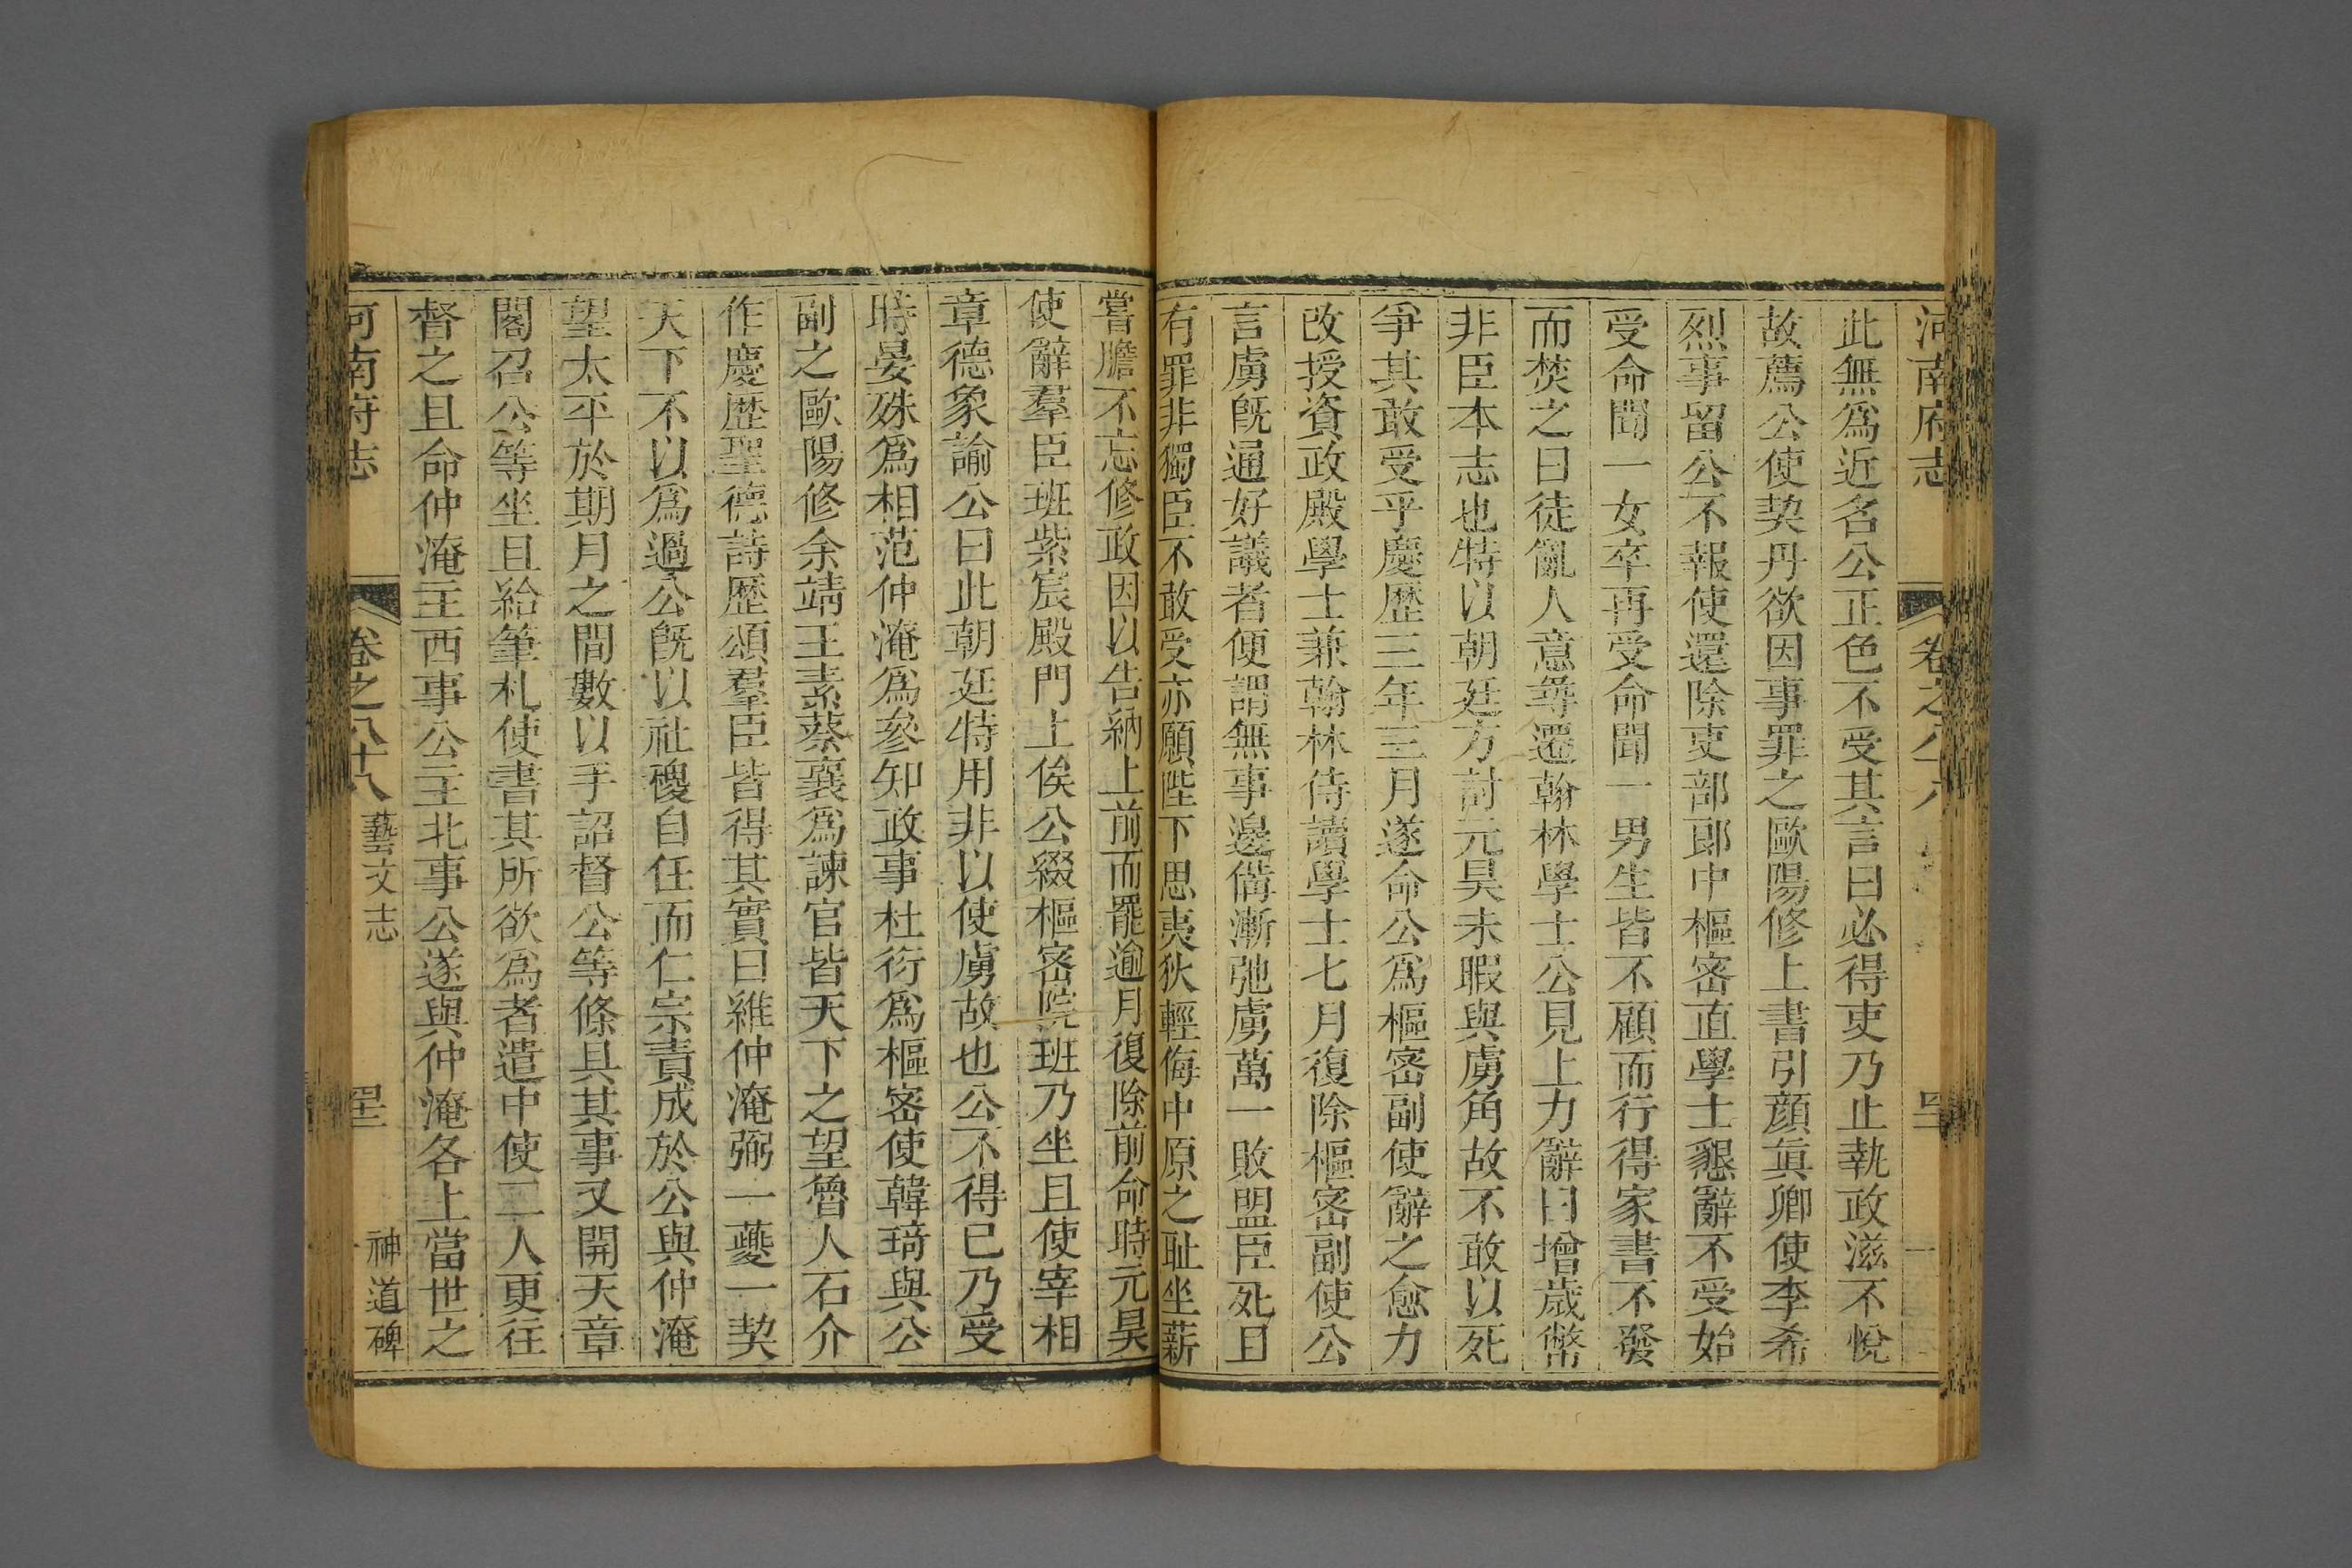 河南府志
卷之八十八
此無爲近名公正色不受其言曰必得吏乃止執政滋不悅
故薦公使契丹欲因事罪之歐陽修上書引顔眞卿使李希
烈事留公不報使還除吏部郎中樞密直學士懇辭不受始
受命聞一女卒再受命聞一男生皆不顧而行得家書不發
而焚之曰徒亂人意尋遷翰林學士公見上力辭曰增歲幣
非臣本志也特以朝廷方討元昊未暇與虜角故不敢以死
爭其敢受乎慶歷三年三月遂命公爲樞密副使辭之愈力
改授資政殿學士兼翰林侍讀學士七月復除樞密副使公
言虜旣通好議者便謂無事邊備漸弛虜萬一敗盟臣死且
有罪非獨臣不敢受亦願陛下思夷狄輕侮中原之耻坐薪
嘗膽不忘修政因以告納上前而罷逾月復除前命時元昊
使辭羣臣班紫宸殿門上俟公綴樞密院班乃坐且使宰相
章德象諭公曰此朝廷特用非以使虜故也公不得已乃受
時晏殊爲相范仲淹爲參知政事杜衍爲樞密使韓琦與公
副之歐陽修余靖王素蔡襄爲諫官皆天下之望魯人石介
作慶歷聖德詩歷頌羣臣皆得其實曰維仲淹弼一夔一契
天下不以爲過公旣以社稷自任而仁宗責成於公與仲淹
望太平於期月之間數以手詔督公等條具其事又開天章
閣召公等坐且給筆札使書其所欲爲者遣中使二人更往
督之且命仲淹主西事公主北事公遂與仲淹各上當世之
河南府志
卷之八十八
藝文志
神道碑